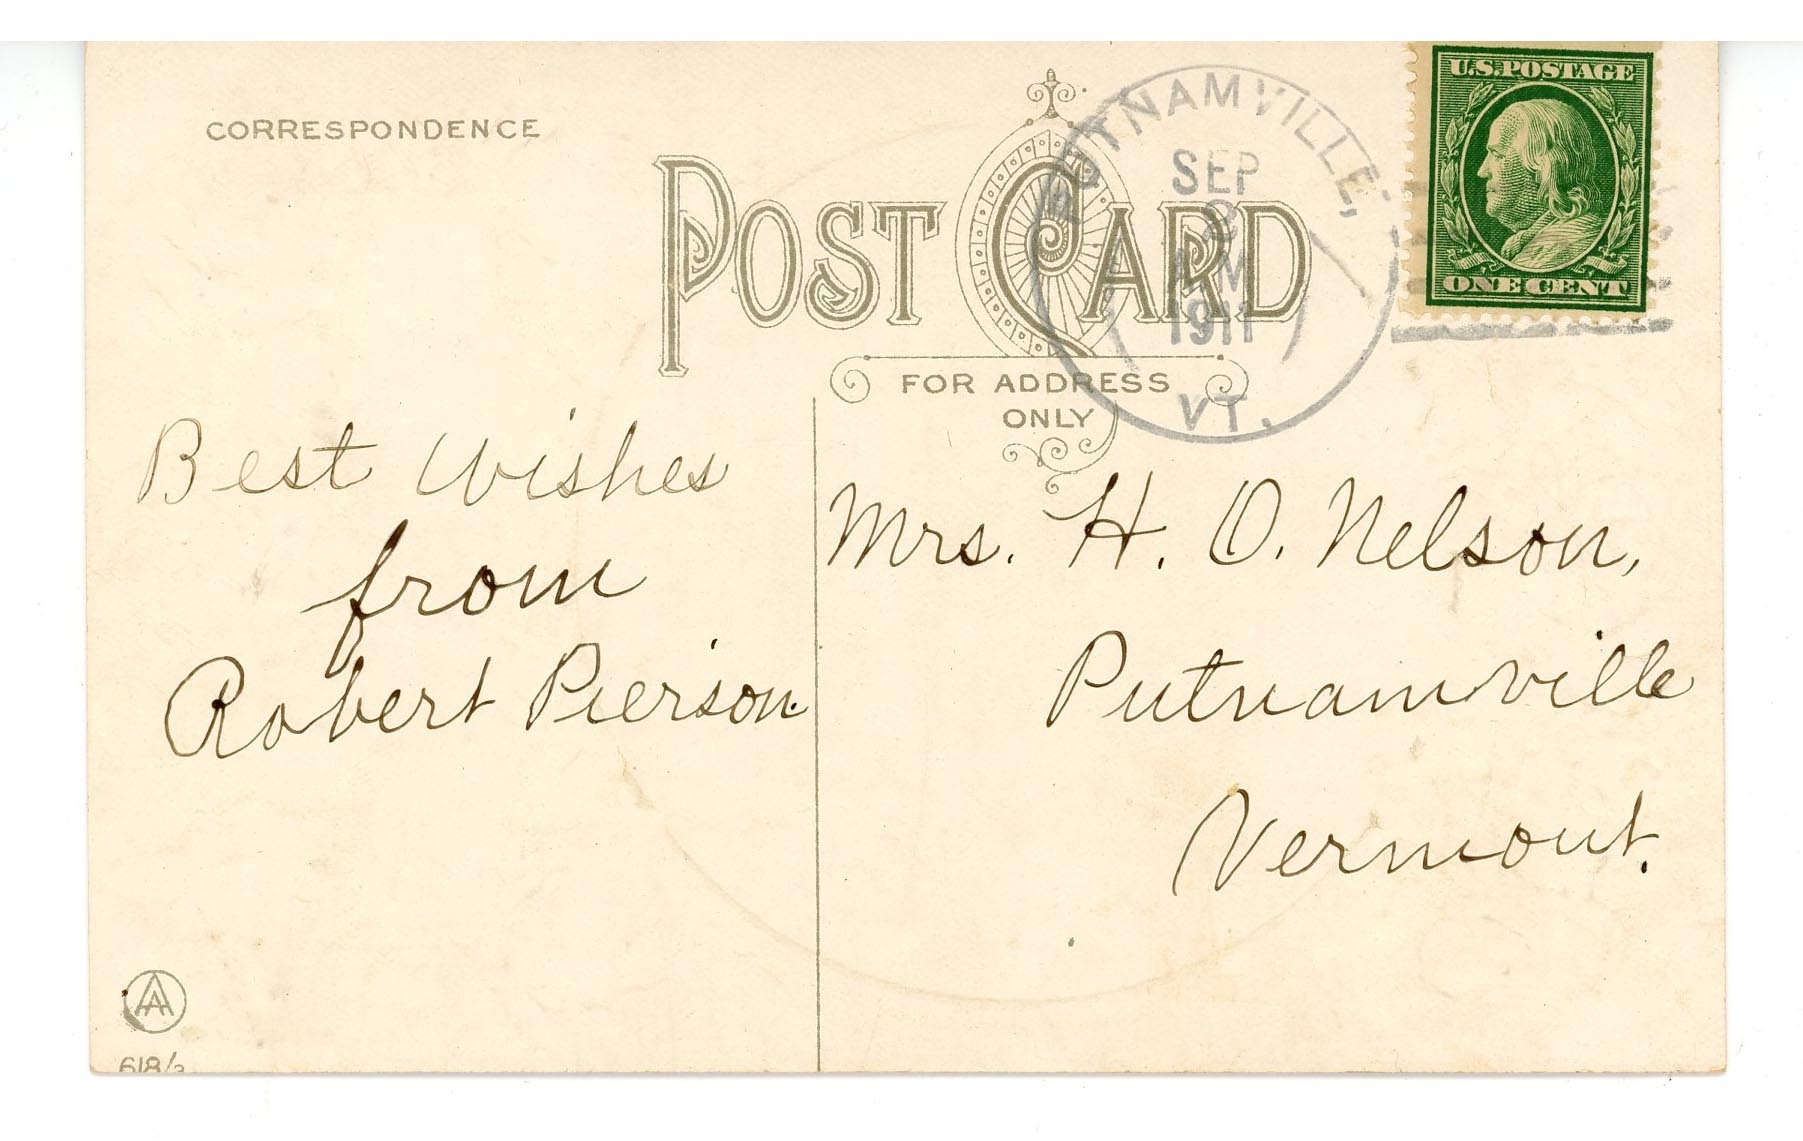 CORRESPONDENCE
POST CARD
FOR ADDRESS
ONLY
PUTNAMVILLE,
SEP
2
AM
1911
VT.
U.S. POSTAGE
ONE CENT
Best Wishes
from
Robert Pierson.
Mrs. H. O. Nelson,
Putnamville
Vermont.
AA
618/